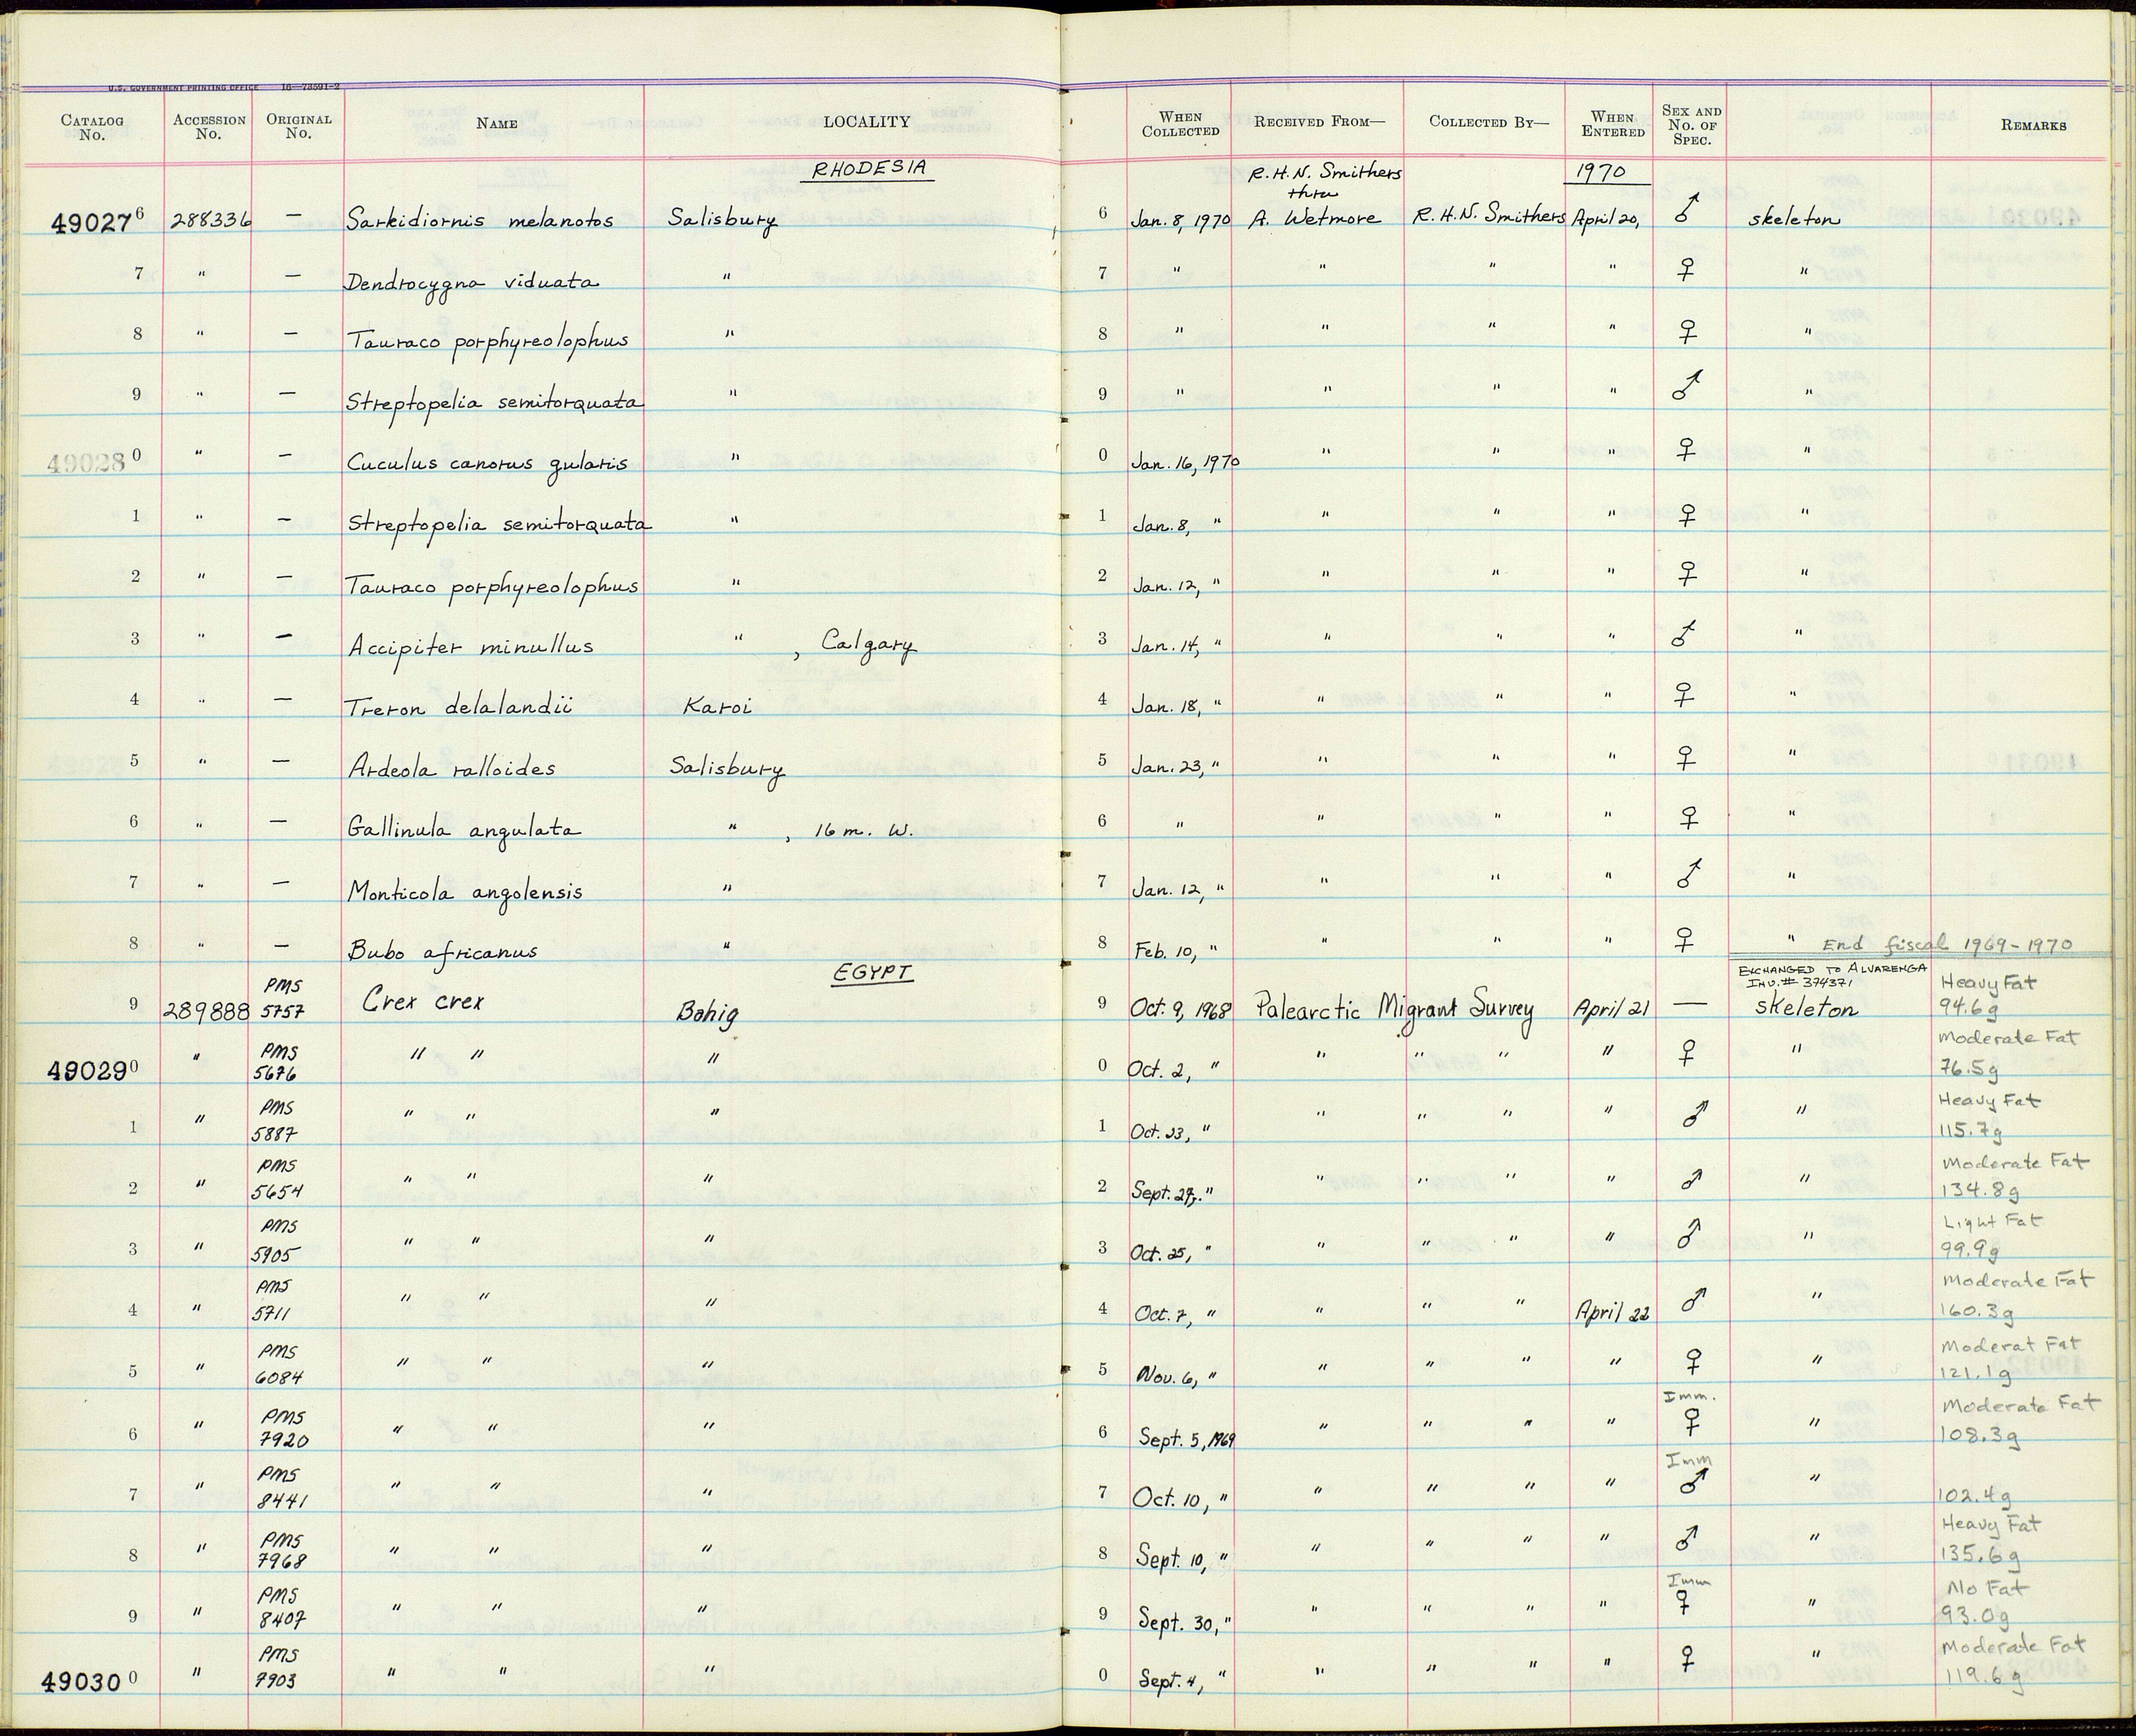 U.S. GOVERNMENT PRINTING OFFICE 16—73591-2
CATALOG No. ACCESSION No. ORIGINAL No. NAME LOCALITY WHEN COLLECTED RECEIVED FROM— COLLECTED BY— WHEN ENTERED SEX AND No. OF SPEC. REMARKS
RHODESIA R.H.N. Smithers thru 1970
490276 288336 — Sarkidiornis melanotos Salisbury 6 Jan. 8, 1970 A. Wetmore R.H.N. Smithers April 20, ♂ skeleton
7 " — Dendrocygna viduata " 7 " " " " ♀ "
8 " — Tauraco porphyreolophus " 8 " " " " ♀ "
9 " — Streptopelia semitorquata " 9 " " " " ♂ "
490280 " — Cuculus canorus gularis " 0 Jan. 16, 1970 " " " ♀ "
1 " — Streptopelia semitorquata " 1 Jan. 8, " " " " ♀ "
2 " — Tauraco porphyreolophus " 2 Jan. 12, " " " " ♀ "
3 " — Accipiter minullus " , Calgary 3 Jan. 14, " " " " ♂ "
4 " — Treron delalandii Karoi 4 Jan. 18, " " " " ♀ "
5 " — Ardeola ralloides Salisbury 5 Jan. 23, " " " " ♀ "
6 " — Gallinula angulata " , 16 m. W. 6 " " " " ♀ "
7 " — Monticola angolensis " 7 Jan. 12, " " " " ♂ "
8 " — Bubo africanus " 8 Feb. 10, " " " " ♀ " End fiscal 1969-1970
EGYPT EXCHANGED TO ALVARENGA INV.# 374371
9 289888 PMS 5757 Crex crex Bahig 9 Oct. 9, 1968 Palearctic Migrant Survey April 21 — skeleton Heavy Fat 94.6g
490290 " PMS 5676 " " " 0 Oct. 2, " " " " " ♀ " Moderate Fat 76.5g
1 " PMS 5887 " " " 1 Oct. 23, " " " " " ♂ " Heavy Fat 115.7g
2 " PMS 5654 " " " 2 Sept. 29, " " " " " ♂ " Moderate Fat 134.8g
3 " PMS 5905 " " " 3 Oct. 25, " " " " " ♂ " Light Fat 99.9g
4 " PMS 5711 " " " 4 Oct. 7, " " " " April 22 ♂ " Moderate Fat 160.3g
5 " PMS 6084 " " " 5 Nov. 6, " " " " " ♀ " Moderat Fat 121.1g
6 " PMS 7920 " " " 6 Sept. 5, 1969 " " " " Imm. ♀ " Moderate Fat 108.3g
7 " PMS 8441 " " " 7 Oct. 10, " " " " " Imm ♂ " 102.4g
8 " PMS 7968 " " " 8 Sept. 10, " " " " " ♂ " Heavy Fat 135.6g
9 " PMS 8407 " " " 9 Sept. 30, " " " " " Imm ♀ " No Fat 93.0g
490300 " PMS 7903 " " " 0 Sept. 4, " " " " " ♀ " Moderate Fat 119.6g